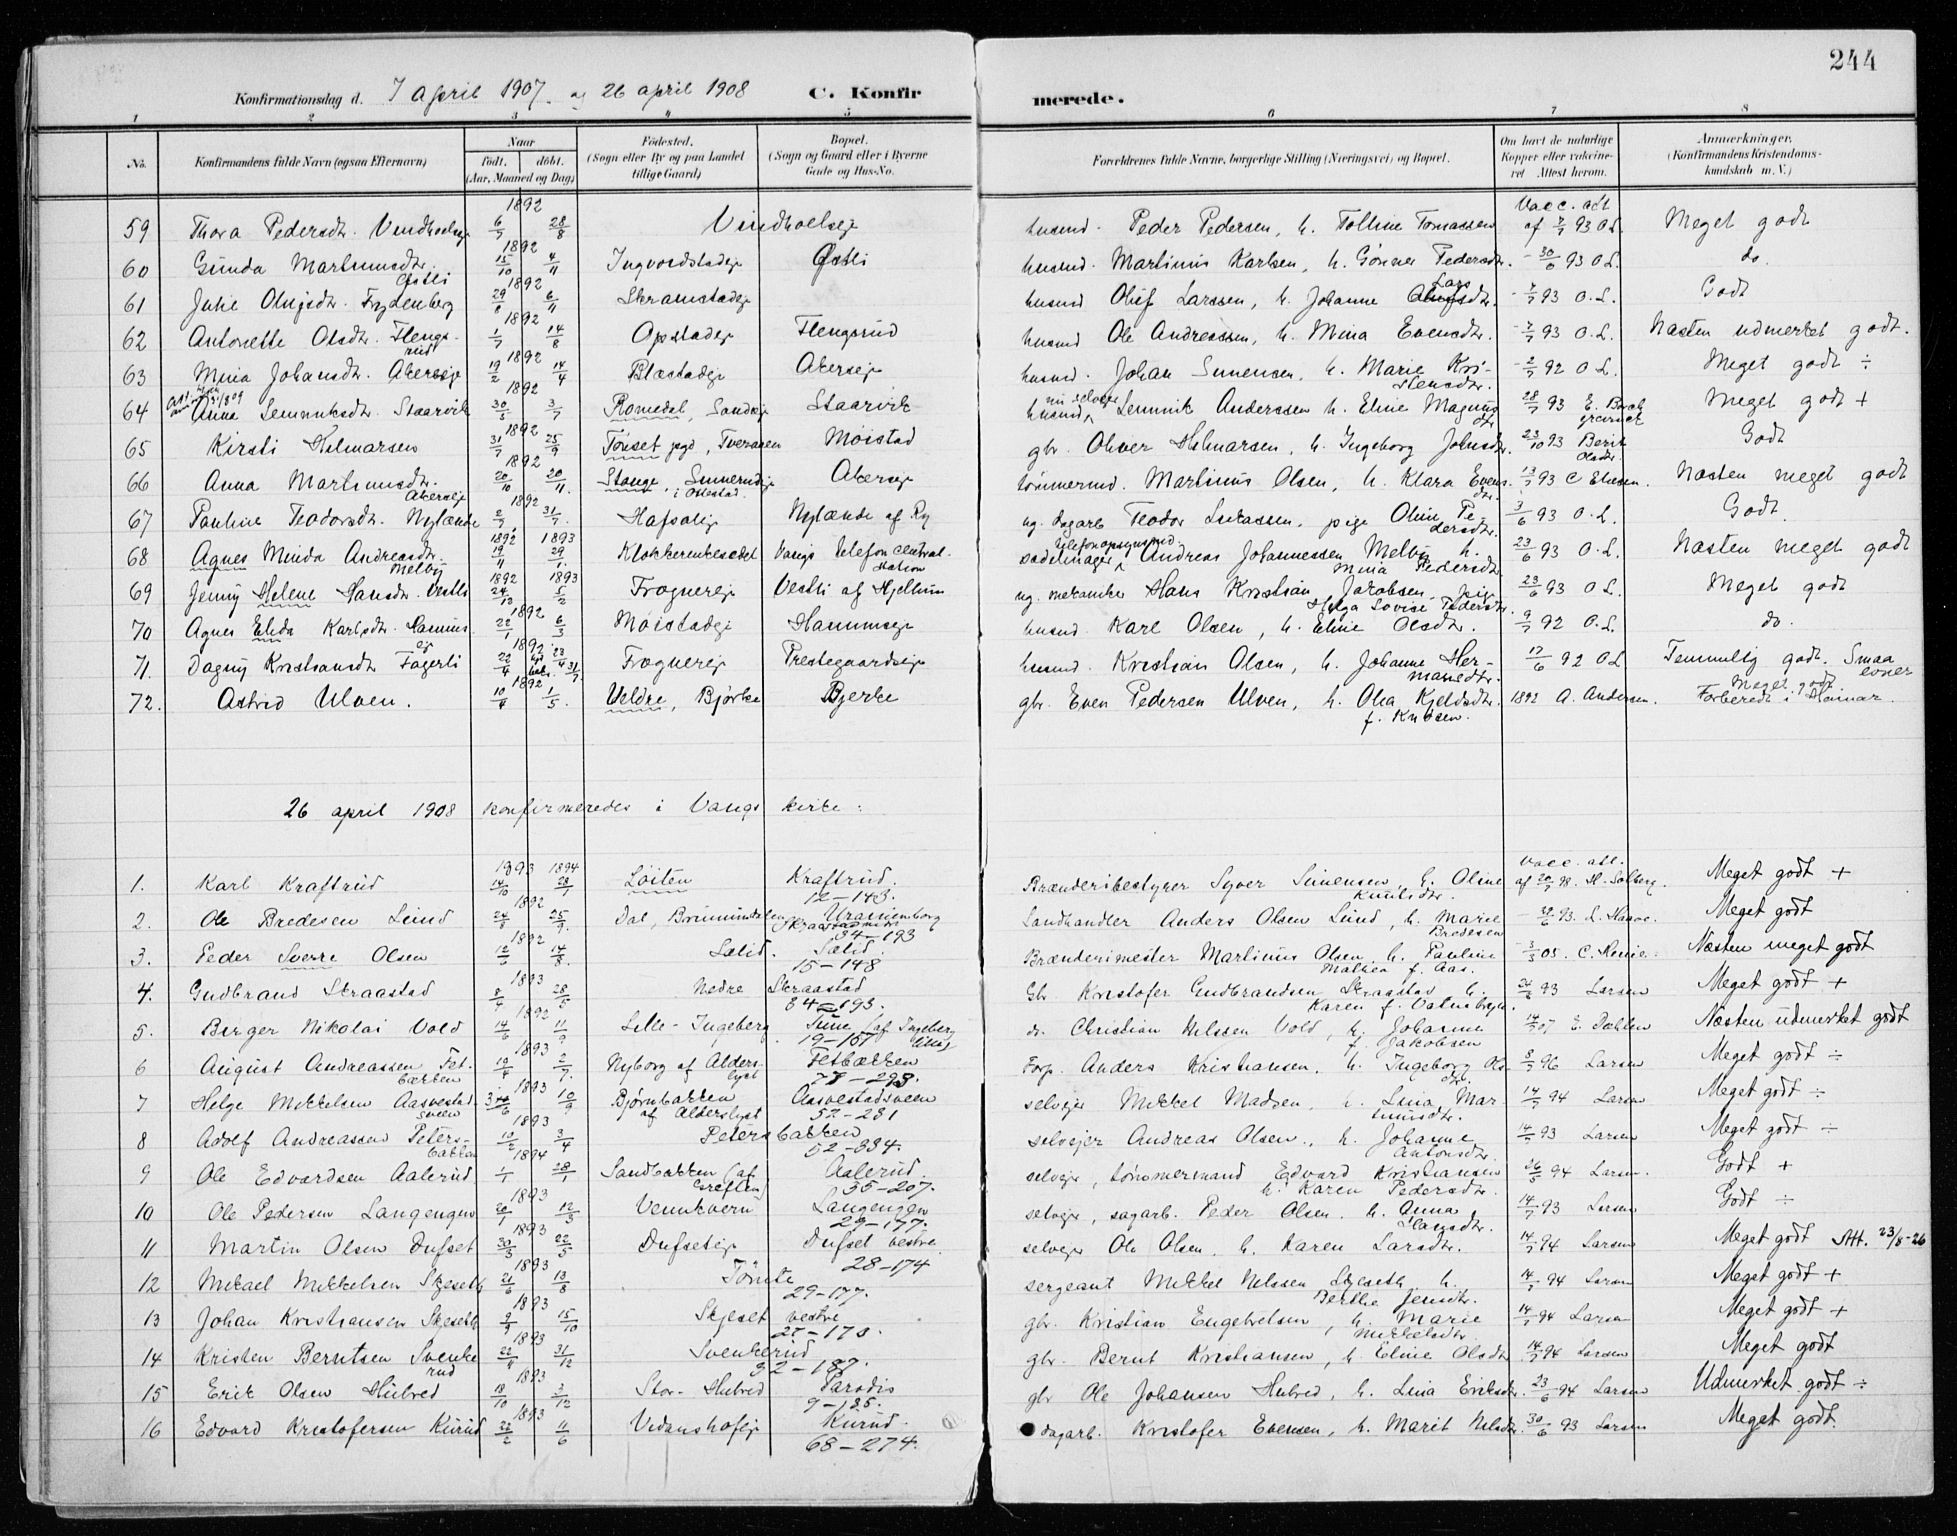 244
Konfirmationsdag d. 7 april 1907 og 26 april 1908 C. Konfirmerede.
1 2 3 4 5 6 7 8
No. Konfirmandens fulde Navn (ogsaa Efternavn) Naar født. døbt. (Aar, Maaned og Dag) Fødested. (Sogn eller By og paa Landet tillige Gaard) Bopæl. (Sogn og Gaard eller i Byerne Gade og Hus-No. Forældrenes fulde Navne, borgerlige Stilling (Næringsvei) og Bopæl. Om havt de naturlige Kopper eller vakcineret Attest herom. Anmærkninger. (Konfirmandens Kristendomskundskab m. V.)
59 Thora Pedersdtr. Vindhoelseje 1892 6/7 28/8 Vindhoelseje husmd. Peder Pedersen, h. Tolline Tomassen Vacc. att af 7/7 93 O.L. Meget godt
60 Gunda Martinusdtr. Østli 1892 15/10 4/11 Ingvordstadeje Østli husmd. Martinus Karlsen, h. Gunner Pedersdtr. 30/6 93 O.L. do.
61 Julie Olufsdtr. Frydenberg 1892 29/8 6/11 Skramstadeje husmd Oluf Larssen, h. Johanne Larsdtr. 7/7 93 O.L. Godt
62 Antonette Olsdtr. Flengsrud 1892 1/7 14/8 Opstadeje Flengsrud husmd Ole Andreassen, h. Mina Evensdtr. 7/7 93 O.L. Næsten udmerket godt.
63 Mina Johansdtr. Akerseje 1892 19/2 14/4 Blæstadeje Akerseje husmd. Johan Simensen, h. Marie Kristensdtr. 2/7 92 O.L. Meget godt ÷
64 Anna Lemmiksdtr. Staarvik 1892 30/5 3/7 Romedal, Sandeje Staarvik husmd nu selveje Lemmik Anderssen h. Eline Magnusdtr 28/7 93 E. Bock Meget godt +
65 Kirsti Helmarsen 1892 31/7 25/9 Tønset pgd, Tveraaen Moistad gbr. Oliver Helmarsen, h. Ingeborg Johnsdtr. 23/10 93 Berit Olsdtr. Godt
66 Anna Martinusdtr. Akerseje 1892 20/10 20/11 Stange, Simerudeje i Ottestad Akerseje tømmermd. Martinus Olsen, h. Klara Evensdtr. 13/7 93 C Elvesen. Næsten meget godt
67 Pauline Teodorsdtr. Nylænde 1892 2/7 31/7 Hafsaleje Nylænde af Ry ug. dagarb Teodor Lukassen, pige Oline Pedersdtr. 3/6 93 O.L. Godt
68 Agnes Minda Andreasdtr. Melby 1892 19/11 1893 29/1 Klokkerenkesædet Vangs Telefon central station sadelmager, telefonopsynsmd. Andreas Johannessen Melby h. Mina Pedersdtr 23/6 93 O.L. Næsten meget godt
69 Jenny Helene Hansdtr. Vestli 1892 24/12 1893 5/2 Frogner­eje Vestli af Hjellum ug. mekaniker Hans Kristian Jakobsen, pige Helga Lovise Pedersdtr 23/6 93 O L. Meget godt
70 Agnes Elida Karlsdtr. Hammerseje 1892 22/1 6/3 Moistadeje Hammerseje husmd. Karl Olsen, h. Eline Olsdtr. 9/7 92 O.L. do.
71 Dagny Kristiansdtr Fagerli 1892 22/4 23/4 31/7 Frogner­eje Prestegaardseje husmd. Kristian Olsen, h. Johanne Hermansdtr. 17/6 92 O.L Temmelig godt. Smaa evner
72. Astrid Ulven. 1892 10/4 1/5. Veldre, Bjørke Bjerke gbr. Even Pedersen Ulven, h. Olea Kjeldsdtr. f. Knudsen. 1892 A. Andersen. Meget godt Forberedt i Hamar.
26 april 1908 konfirmeredes i Vangs kirke:
1. Karl Kraftrud 1893 14/10 1894 28/1 Løiten Kraftrud. 12-143. Brænderibestyrer Syver Simensen, h. Oline Knutsdtr. Vacc. att. af 20/7 98. H. Solberg. Meget godt +
2. Ole Bredesen Lund 1892 24/8 25/9. Dal, Brumunddalen Uranienborg Skraastad nedre 34-193 Landhandler Anders Olsen Lund, h. Marie Bredesen 29/6 93. L. Haave. Meget godt
3. Peder Sverre Olsen 1892 12/5 14/8. Sælid. Sælid. 15-148 Brænderimester Martinus Olsen, h. Pauline Mathea f. Aas. 3/3 05. C. Henie. Næsten meget godt
4. Gudbrand Skraastad 1893 8/4 28/5 Nedre Skraastad 34-193. Gbr Kristofer Gudbrandsen Skraastad h. Karen f. 24/6 93 Larsen Meget godt +
5. Birger Nikolai Vold 1892 14/6 11/9 Lille-Ingeberg Tune (af Ingeberg lille) 19-157 do. Christian Nilssen Vold, h. Johanne f. Jakobsen 14/5 07 E. Dahlen Næsten udmerket godt
6 August Andreassen Fetbækken 1893 19/4 2/7. Nyborg af Alderslyst Fetbækken 78-293 Forp. Anders Kristiansen, h. Ingeborg Olsdtr. 8/7 96 Larsen Meget godt ÷
7 Helge Mikkelsen Aasvestadsveen 1893 10/9 Bjørnbækken af Alderslyst Aasvestadsveen 52-231 selvejer Mikkel Madsen, h. Lina Martinusdtr. 14/7 94 Larsen Meget godt ÷
8 Adolf Andreassen Petersbakken 1893 10/2 3/4 Petersbakken 52-334. selvejer Andreas Olsen, h. Johanne Antonsdtr. 14/7 93 Larsen Meget godt ÷
9 Ole Edvardsen Aalerud 1894 1/1 28/1 Sandbakken (af Greften) Aalerud 35-207. selveje, tømmermand Edvard Kristiansen h. Karen Pedersdtr. 26/5 94 Larsen. Godt +
10 Ole Pedersen Langengen 1893 20/1 12/3 Vennkvern Langengen 29-177. selveje, sagarb. Peder Olsen, h. Anna Hansdtr. 14/7 93 Larsen Godt ÷
11 Martin Olsen Dufset 1893 30/3 22/5 Dufseteje Dufset vestre 28-174 selveje Ole Olsen, h. Karen Larsdtr. 14/7 94 Larsen Meget godt Att. 23/8-26
12 Mikael Mikkelsen Skjeseth 1893 21/6 13/8 Tømte 29-177. sergeant Mikkel Nilssen Skjeseth h. Berthe Jensdtr. 14/7 94 Larsen Meget godt +
13 Johan Kristiansen Skjeseth 1893 9/9 15/10 Skjeset vestre 27-173. gbr. Kristian Engebretsen, h. Marie Mikkelsdtr. 14/7 94 Larsen Meget godt +
14 Kristen Berntsen Svenkerud 1893 22/9 31/12 Svenkerud 32-187. gbr. Bernt Kristiansen, h. Eline Olsdtr 14/7 94 Larsen Meget godt
15 Erik Olsen Hubred 1893 18/10 3/12 Stor-Hubred Paradis 9-135. gbr Ole Johansen Hubred, h. Lina Eriksdtr. 23/6 94 Larsen Udmerket godt ÷
16 Edvard Kristofersen Kurud 1893 22/2 11/6 Vidarshofeje Kurud. 68-274. dagarb. Kristofer Evensen, h. Marit Nilsdtr. 30/6 93 Larsen Meget godt.